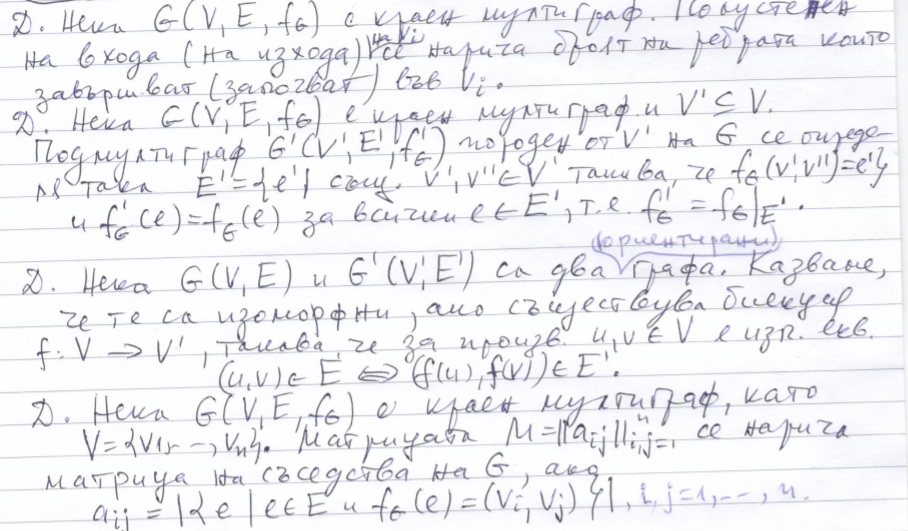 Д. Нека G(V, E, f_G) е краен мултиграф. Полустепен
на входа (на изхода) на v_i се нарича броят на ребрата които
завършват (започват) във v_i.
Д. Нека G(V, E, f_G) е краен мултиграф и V' ⊆ V.
Подмултиграф G'(V', E', f'_G) породен от V' на G се опреде-
ля така E' = {e' | същ. v', v'' ∈ V' такива, че f_G(v', v'') = e'}
и f'_G(e) = f_G(e) за всички e ∈ E', т.е. f'_G = f_G|_E'.
(ориентирани)
Д. Нека G(V, E) и G'(V', E') са два графа. Казваме,
че те са изоморфни, ако съществува биекция
f: V → V', такава, че за произв. u, v ∈ V е изп. екв.
(u, v) ∈ E ⇔ (f(u), f(v)) ∈ E'.
Д. Нека G(V, E, f_G) е краен мултиграф, като
V = {v_1, --, v_n}. Матрицата M = ||a_ij||^n_i,j=1 се нарича
матрица на съседства на G, ако
a_ij = |{e | e ∈ E и f_G(e) = (v_i, v_j)}|, i, j = 1, --, n.